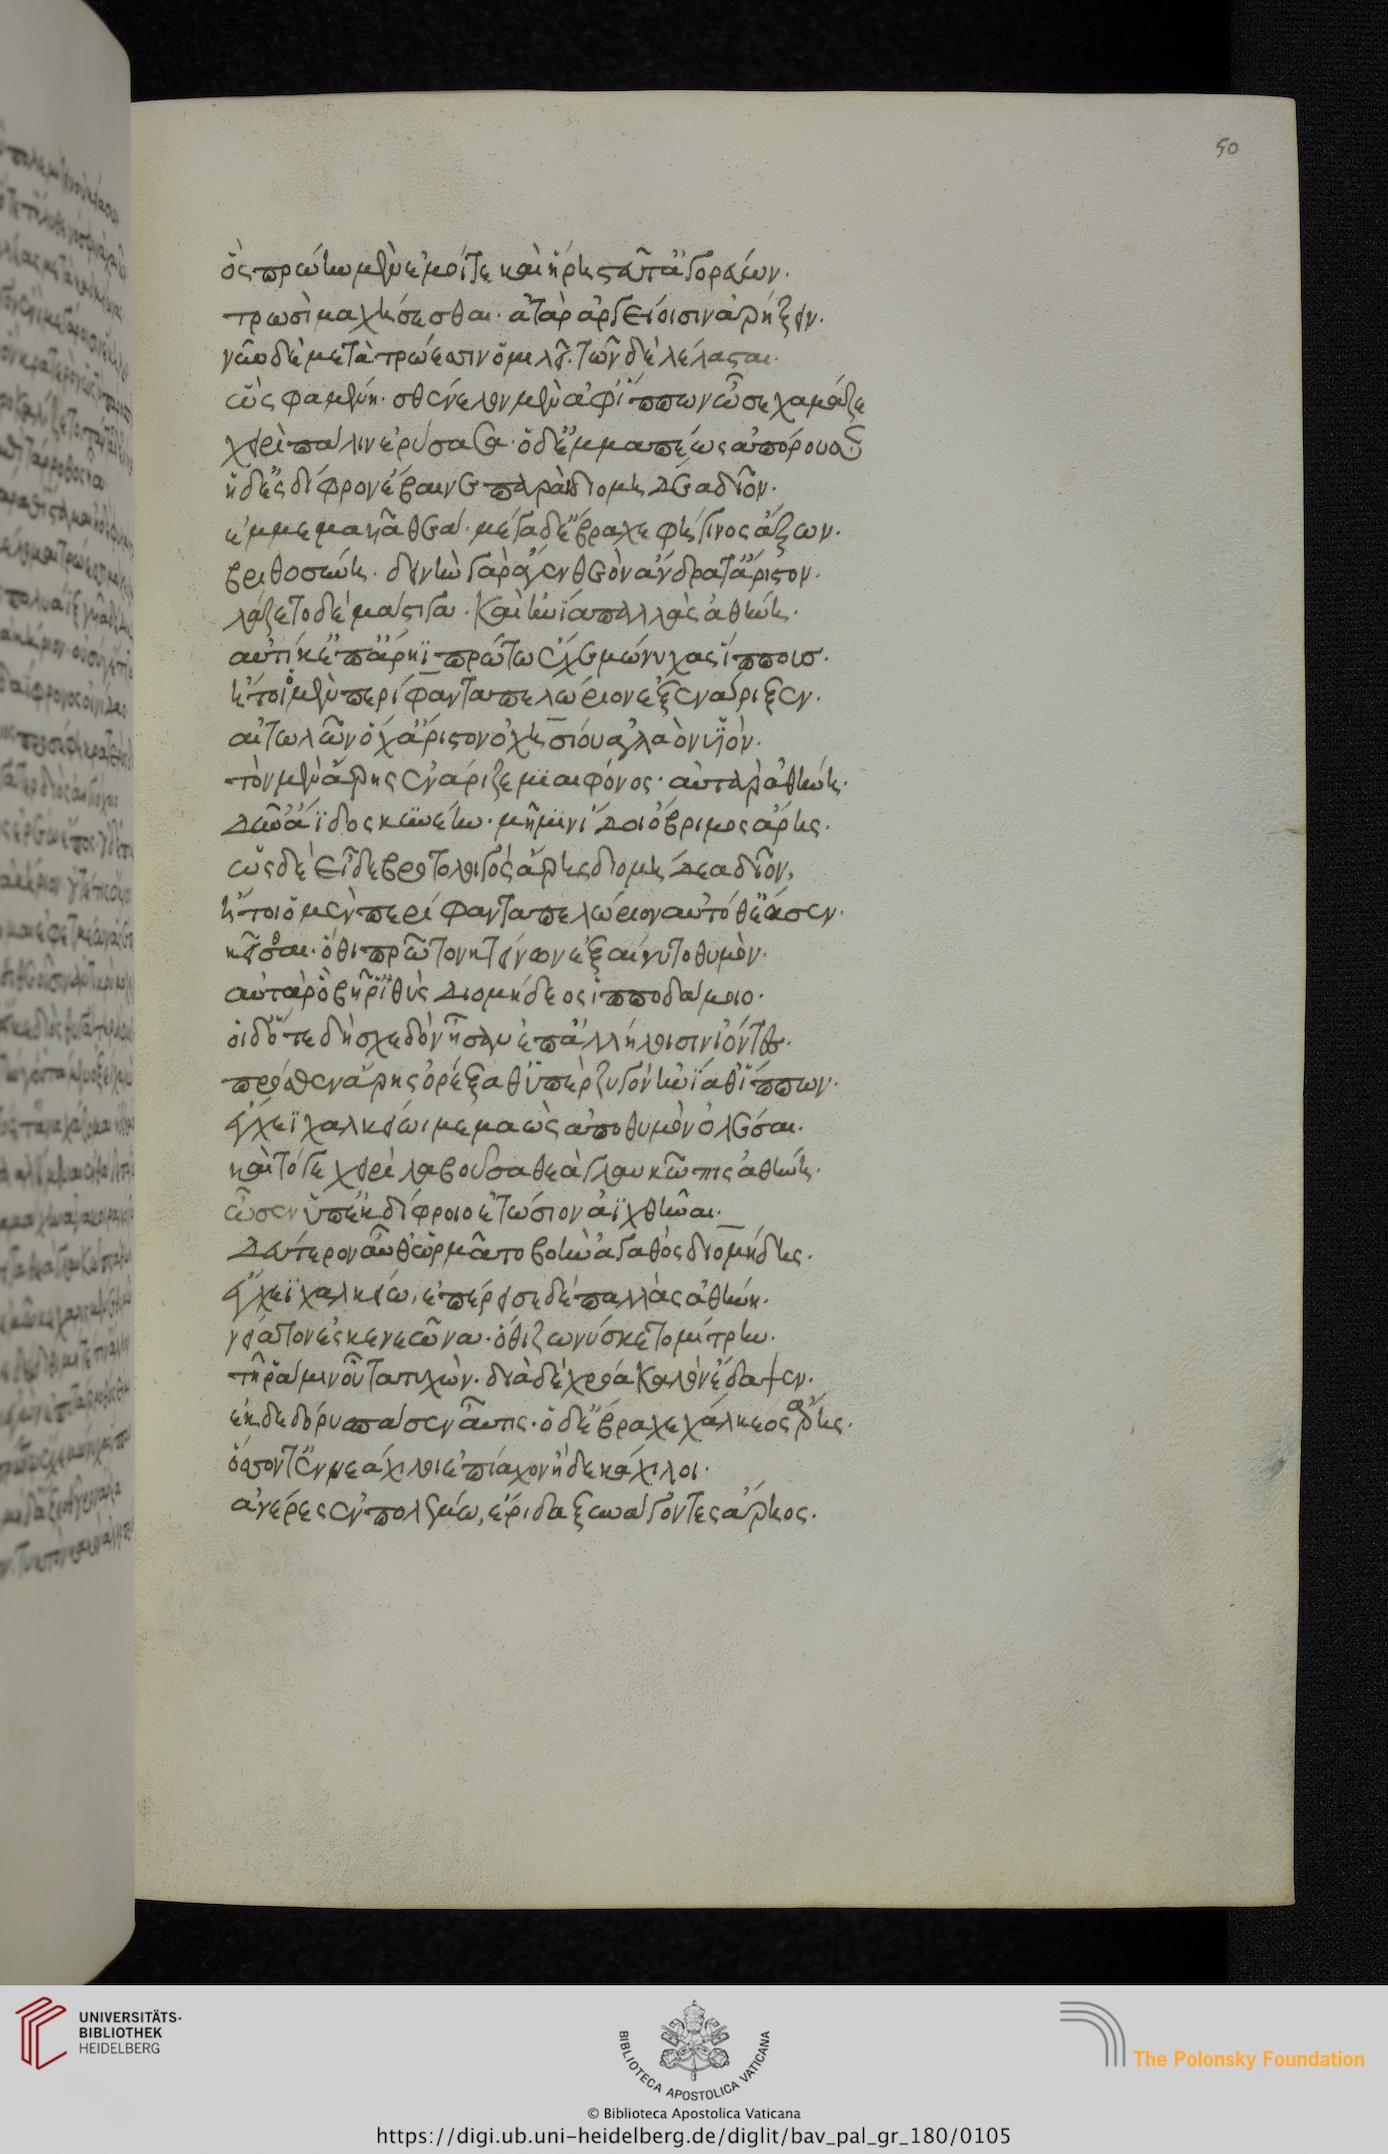 50
ὃς πρώην μὲν ἐμοί τε καὶ ἥρῃ στεῦτ' ἀγορεύων.
τρωσὶ μαχήσεσθαι. ἀτὰρ ἀργείοισιν ἀρήξειν.
νῦν δὲ μετὰ τρώεσσιν ὁμιλεῖ. τῶν δὲ λέλασται.
ὣς φαμένη. σθένελον μὲν ἀφ' ἵππων ὦσε χαμᾶζε
χειρὶ πάλιν ἐρύσασα. ὁ δ' ἐμμαπέως ἀπόρουσε
ἡ δ' ἐς δίφρον ἔβαινε παραὶ διομήδεα δῖον.
ἐμμεμαυῖα θεά. μέγα δ' ἔβραχε φήγινος ἄξων.
βριθοσύνῃ. δεινὴν γὰρ ἄγεν θεὸν ἄνδρα τ' ἄριστον.
λάζετο δὲ μάστιγα. καὶ ἡνία παλλὰς ἀθήνη.
αὐτίκ' ἐπ' ἄρηϊ πρώτω ἔχε μώνυχας ἵππους.
ἤτοι ὁ μὲν περίφαντα πελώριον ἐξενάριξεν.
αἰτωλῶν ὄχ' ἄριστον ὀχησίου ἀγλαὸν υἱόν.
τὸν μὲν ἄρης ἐνάριζε μιαιφόνος. αὐτὰρ ἀθήνη.
δῦν' ἄϊδος κυνέην. μή μιν ἴδοι ὄβριμος ἄρης.
ὡς δὲ εἶδε βροτολοιγὸς ἄρης διομήδεα δῖον,
ἤτοι ὁ μὲν περίφαντα πελώριον αὐτόθ' ἔασεν.
κεῖσθαι. ὅθι πρῶτον κτείνων ἐξαίνυτο θυμὸν.
αὐτὰρ ὁ βῆ ῥ' ἰθὺς διομήδεος ἱπποδάμοιο.
οἱ δ' ὅτε δὴ σχεδὸν ἦσαν ἐπ' ἀλλήλοισιν ἰόντες.
πρόσθεν ἄρης ὀρέξαθ' ὑπὲρ ζυγὸν ἡνία θ' ἵππων.
ἔγχεϊ χαλκείωι μεμαὼς ἀπο θυμὸν ὀλέσαι.
καὶ τό γε χειρὶ λαβοῦσα θεὰ γλαυκῶπις ἀθήνη.
ὦσεν ὑπ' ἐκ δίφροιο ἐτώσιον ἀϊχθῆναι.
δεύτερον αὖθ' ὡρμᾶτο βοὴν ἀγαθὸς διομήδης.
ἔγχεϊ χαλκείω, ἐπέρεισε δὲ παλλὰς ἀθήνη.
νείατον ἐς κενεῶνα. ὅθι ζωνύσκετο μίτρην.
τῇ ῥά μιν οὖτα τυχὼν. διὰ δὲ χρόα καλὸν ἔδαψεν.
ἐκ δὲ δόρυ σπάσεν αὖτις. ὁ δ' ἔβραχε χάλκεος ἄρης.
ὅσσον τ' ἐννεάχιλοι ἐπίαχον ἠδεκάχιλοι.
ἀνέρες ἐν πολέμω, ἔριδα ξυνάγοντες ἄρηος.
UNIVERSITÄTS-
BIBLIOTHEK
HEIDELBERG
BIBLIOTECA APOSTOLICA VATICANA
The Polonsky Foundation
© Biblioteca Apostolica Vaticana
https://digi.ub.uni-heidelberg.de/diglit/bav_pal_gr_180/0105